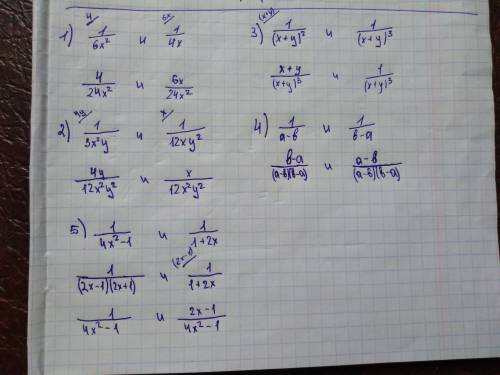 1) 4/ 1/(6x²) и 6x/ 1/(4x)
4/(24x²) и 6x/(24x²)
2) 4y/ 1/(3x²y) и x/ 1/(12xy²)
4y/(12x²y²) и x/(12x²y²)
3) (x+y)/ 1/(x+y)² и 1/(x+y)³
x+y/(x+y)³ и 1/(x+y)³
4) 1/(a-b) и 1/(b-a)
b-a/(a-b)(b-a) и a-b/(a-b)(b-a)
5) 1/(4x²-1) и 1/(1+2x)
1/(2x-1)(2x+1) и (2x-1)/ 1/(1+2x)
1/(4x²-1) и 2x-1/(4x²-1)